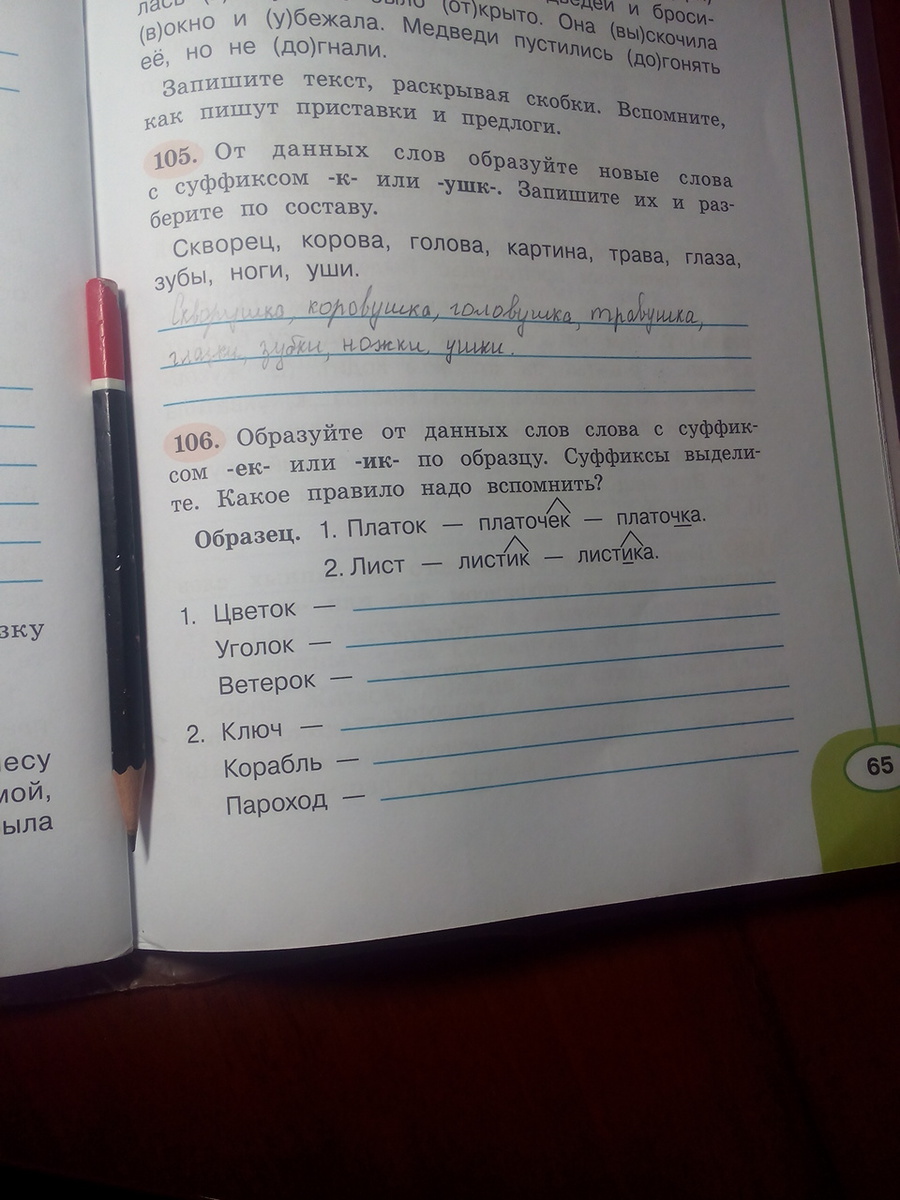 лась
и броси-
(в)окно и (у)бежала. было (от)крыто. Она (вы)скочила
её, но не (до)гнали. Медведи пустились (до)гонять
Запишите текст, раскрывая скобки. Вспомните,
как пишут приставки и предлоги.
105. От данных слов образуйте новые слова
с суффиксом -к- или -ушк-. Запишите их и раз-
берите по составу.
Скворец, корова, голова, картина, трава, глаза,
зубы, ноги, уши.
Скворушка, коровушка, головушка, травушка,
глазки, зубки, ножки, ушки.
106. Образуйте от данных слов слова с суффик-
сом -ек- или -ик- по образцу. Суффиксы выдели-
те. Какое правило надо вспомнить?
Образец. 1. Платок — платочек — платочка.
2. Лист — листик — листика.
1. Цветок —
Уголок —
Ветерок —
2. Ключ —
Корабль —
Пароход —
65
зку
есу
мой,
ыла